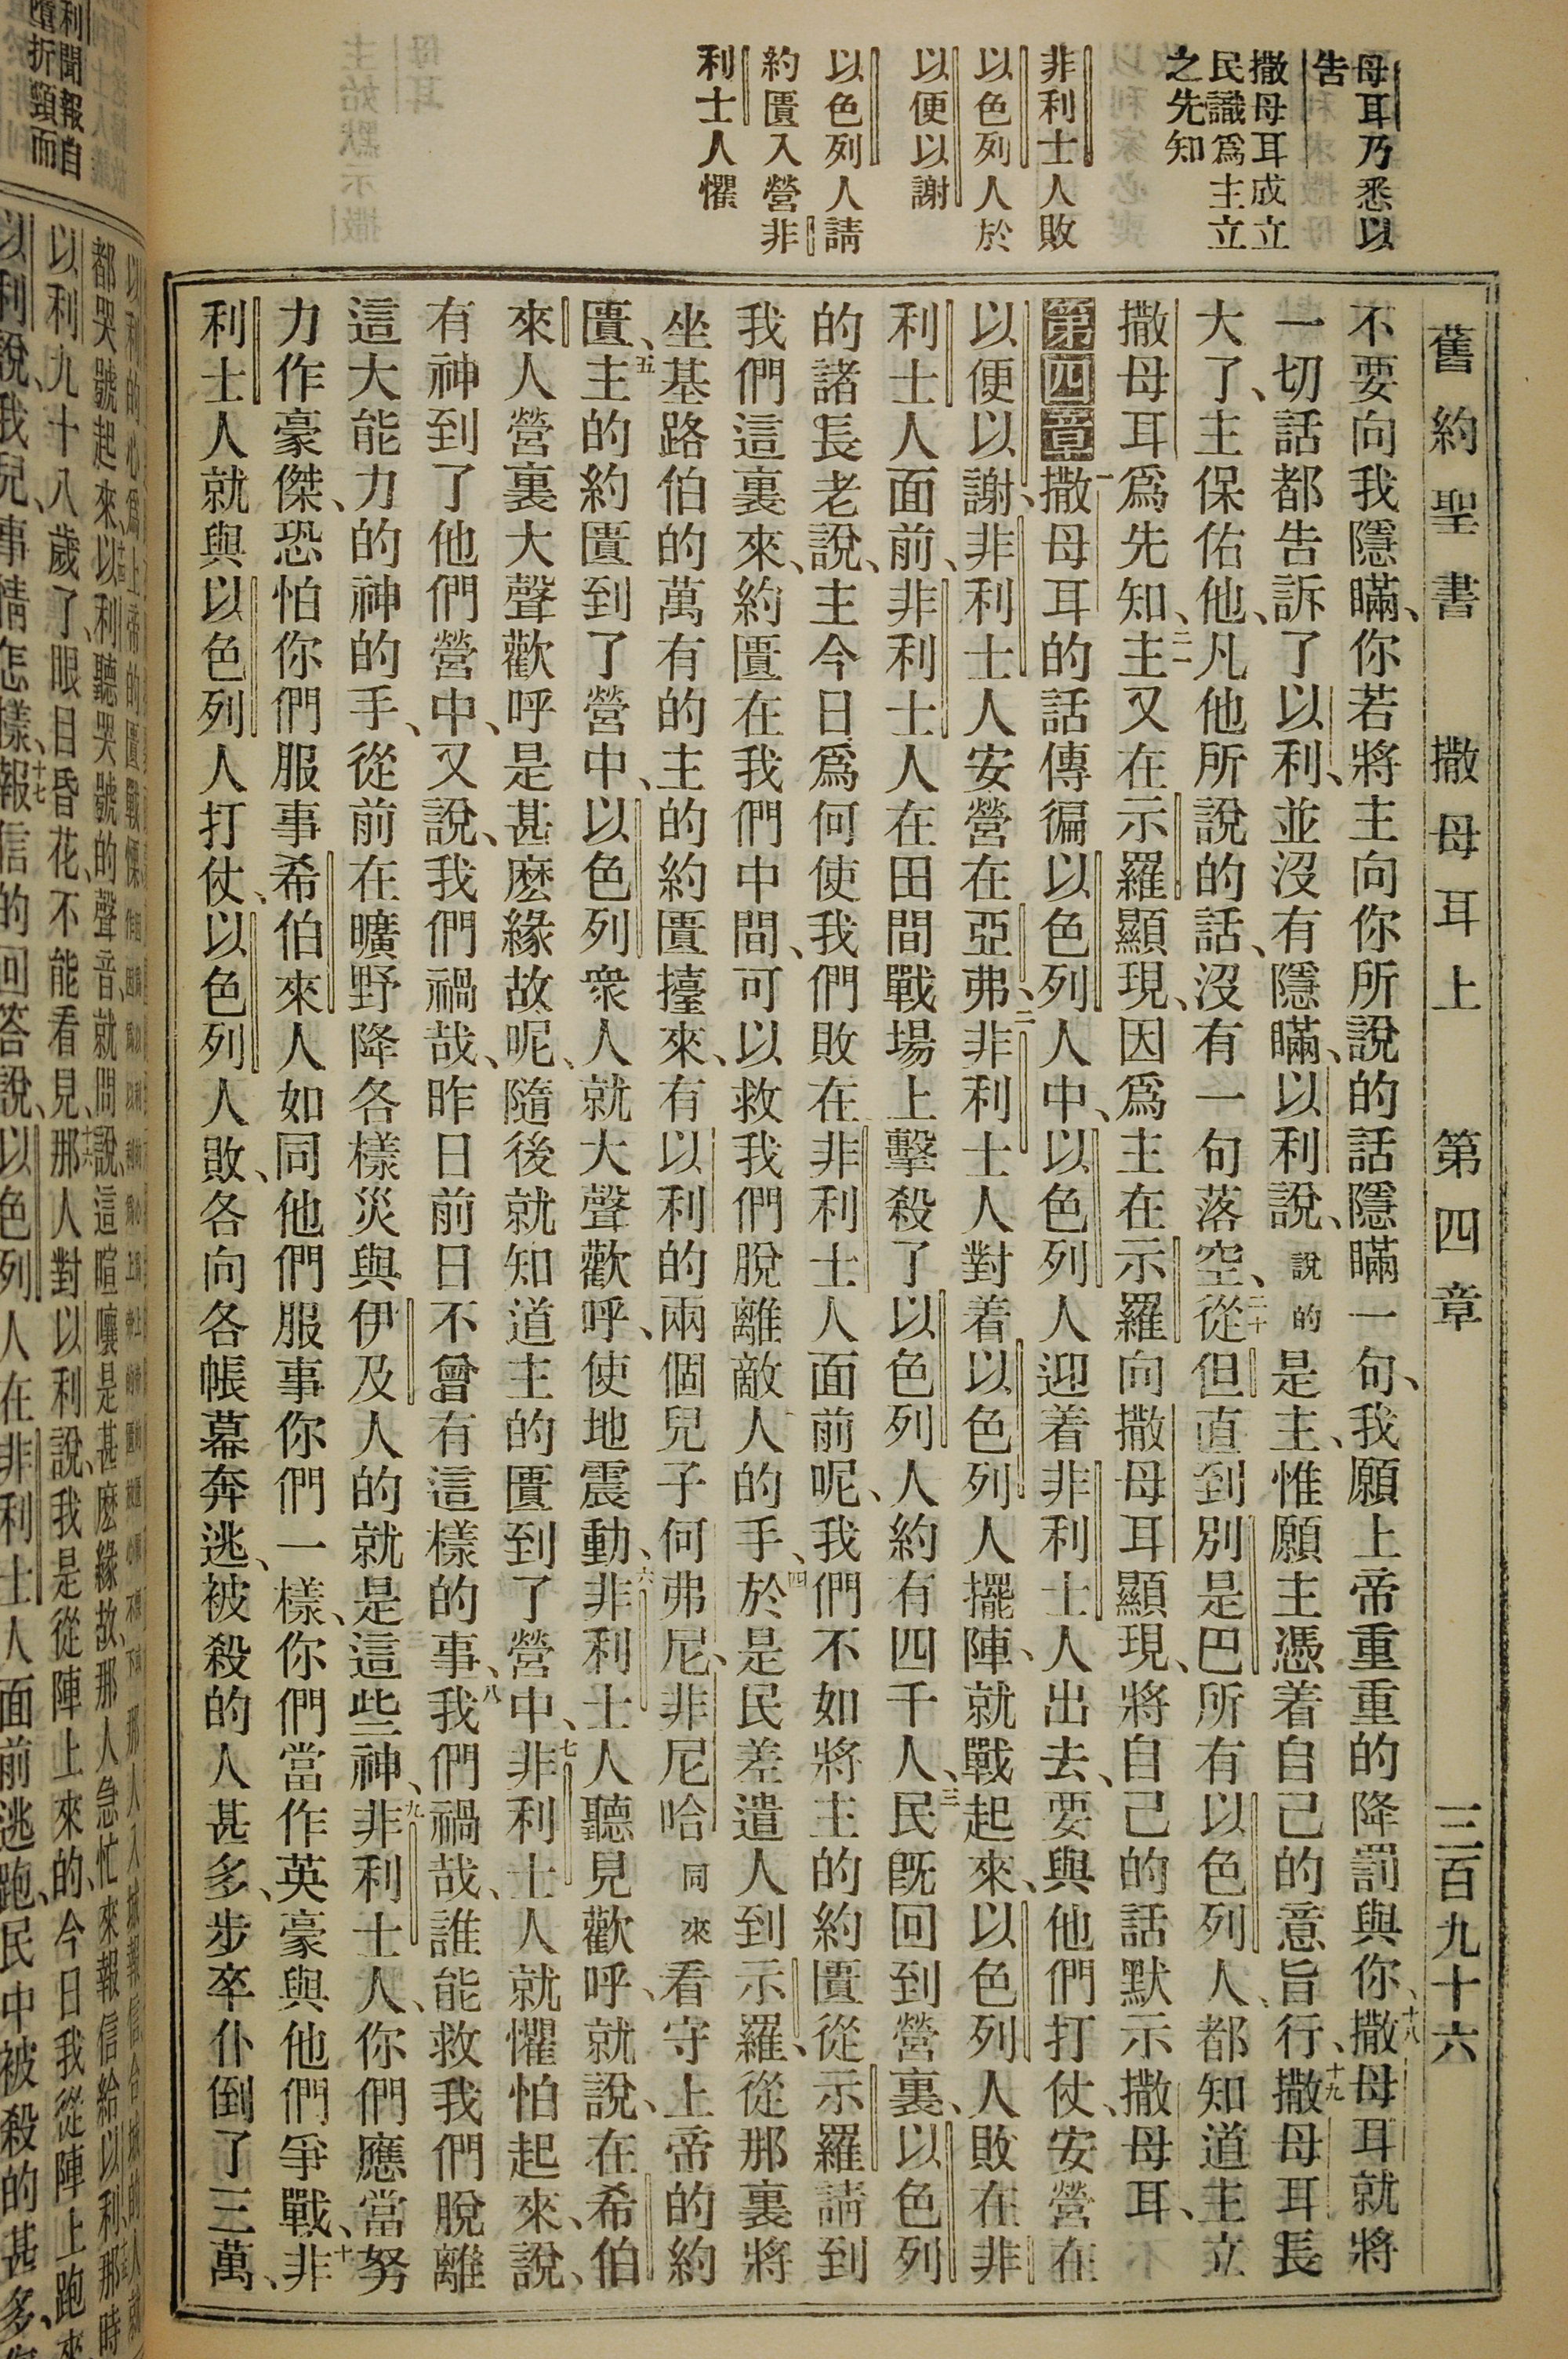 舊約聖書 撒母耳上 第四章 三百九十六
母耳乃悉以
告
撒母耳成立
民識爲主立
之先知
非利士人敗
以色列人於
以便以謝
以色列人請
約匱入營非
利士人懼
不要向我隱瞞、你若將主向你所說的話隱瞞一句、我願上帝重重的降罰與你、十八撒母耳就將
一切話都告訴了以利、並沒有隱瞞、以利說、說的是主、惟願主憑着自己的意旨行、十九撒母耳長
大了、主保佑他、凡他所說的話、沒有一句落空、二十從但直到別是巴所有以色列人、都知道主立
撒母耳爲先知、二一主又在示羅顯現、因爲主在示羅向撒母耳顯現、將自己的話默示撒母耳、
第四章一撒母耳的話傳徧以色列人中、以色列人迎着非利士人出去、要與他們打仗、安營在
以便以謝、非利士人安營在亞弗、二非利士人對着以色列人擺陣、就戰起來、以色列人敗在非
利士人面前、非利士人在田間戰場上擊殺了以色列人約有四千人、三民既回到營裏、以色列
的諸長老說、主今日爲何使我們敗在非利士人面前呢、我們不如將主的約匱從示羅請到
我們這裏來、約匱在我們中間、可以救我們脫離敵人的手、四於是民差遣人到示羅、從那裏將
坐基路伯的萬有的主的約匱擡來、有以利的兩個兒子何弗尼、非尼哈同來看守上帝的約
匱、五主的約匱到了營中、以色列衆人就大聲歡呼、使地震動、六非利士人聽見歡呼、就說、在希伯
來人營裏大聲歡呼是甚麼緣故呢、隨後就知道主的匱到了營中、七非利士人就懼怕起來、說、
有神到了他們營中、又說、我們禍哉、昨日前日不曾有這樣的事、八我們禍哉、誰能救我們脫離
這大能力的神的手、從前在曠野降各樣災與伊及人的就是這些神、九非利士人、你們應當努
力作豪傑、恐怕你們服事希伯來人如同他們服事你們一樣、你們當作英豪與他們爭戰、十非
利士人就與以色列人打仗、以色列人敗、各向各帳幕奔逃、被殺的人甚多、步卒仆倒了三萬、
利聞報自
墮折頸而
都哭號起來、以利聽哭號的聲音、就問說、這喧嚷是甚麼緣故、那人急忙來報信給以利、那時
以利九十八歲了、眼目昏花、不能看見、十六那人對以利說、我是從陣上來的、今日我從陣上跑來、
以利說、我兒、事情怎樣、十七報信的回答說、以色列人在非利士人面前逃跑、民中被殺的甚多、